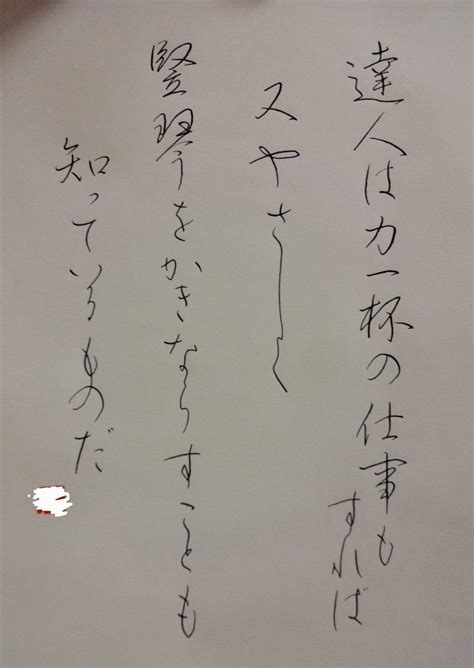 達人は力一杯の仕事もすれば
又やさしく
竪琴をかきならすことも
知っているものだ